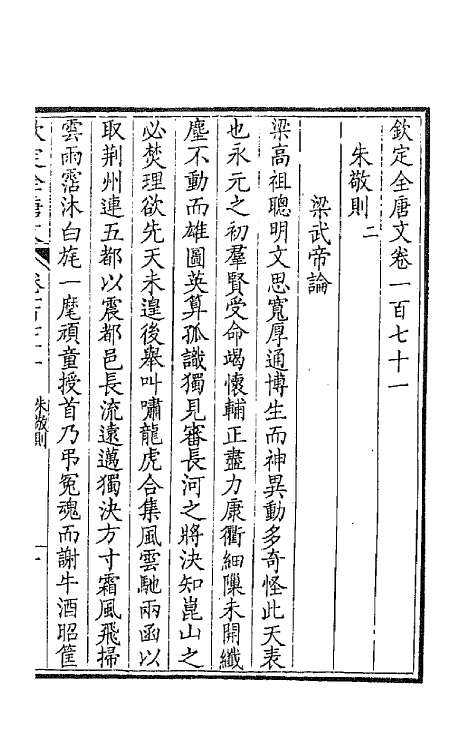 欽定全唐文卷一百七十一
朱敬則二
梁武帝論
梁高祖聰明文思寬厚通博生而神異動多奇怪此天表
也永元之初羣賢受命竭懷輔正盡力康衢細隟未開纖
塵不動而雄圖英算孤識獨見審長河之將決知崑山之
必焚理欲先天未遑後舉叫嘯龍虎合集風雲馳兩函以
取荆州連五都以震都邑長流遠邁獨決方寸霜風飛掃
雲雨霑沐白旄一麾頑童授首乃弔冤魂而謝牛酒昭筐
欽定全唐文
卷一百七十一
朱敬則
一